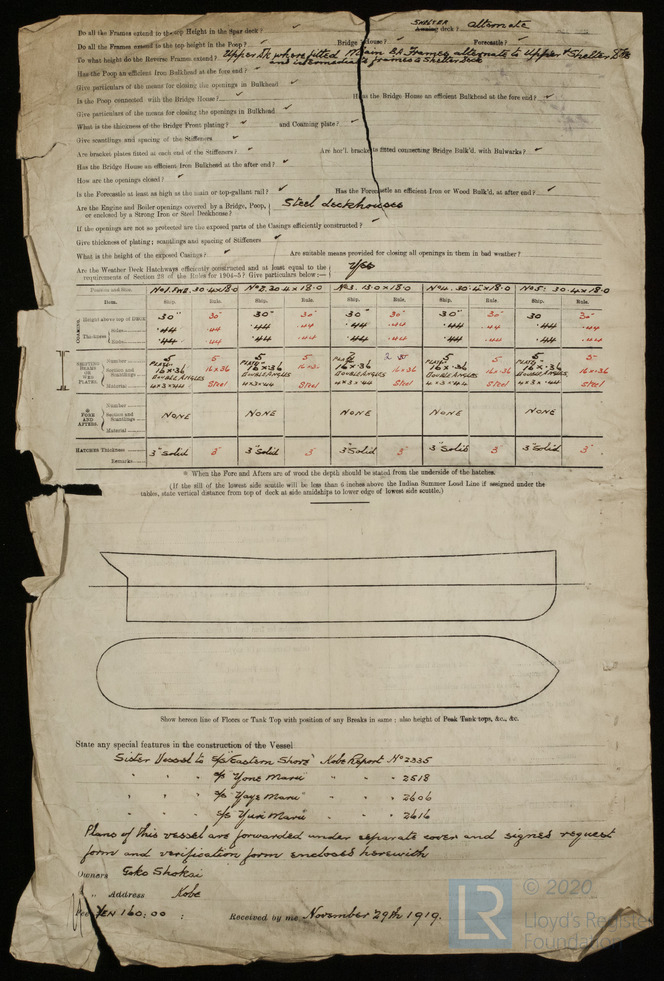 Do all the Frames extend to the top Height in the Spar deck? ✓ SHELTER Awning deck? alternate
Do all the Frames extend to the top height in the Poop? Bridge House? ✓ Forecastle? ✓
To what height do the Reverse Frames extend? Upper Dk where fitted Main B.A. Frames alternate to Upper & Shelter Dks
and intermediate frames to Shelter Deck
Has the Poop an efficient Iron Bulkhead at the fore end? ✓
Give particulars of the means for closing the openings in Bulkhead ✓
Is the Poop connected with the Bridge House? ✓ Has the Bridge House an efficient Bulkhead at the fore end? ✓
Give particulars of the means for closing the openings in Bulkhead
What is the thickness of the Bridge Front plating? ✓ and Coaming plate? ✓
Give scantlings and spacing of the Stiffeners ✓
Are bracket plates fitted at each end of the Stiffeners? ✓ Are hor'l. brackets fitted connecting Bridge Bulk'd. with Bulwarks? ✓
Has the Bridge House an efficient Iron Bulkhead at the after end? ✓
How are the openings closed? ✓
Is the Forecastle at least as high as the main or top-gallant rail? ✓ Has the Forecastle an efficient Iron or Wood Bulk'd, at after end? ✓
Are the Engine and Boiler openings covered by a Bridge, Poop, or enclosed by a Strong Iron or Steel Deckhouse? Steel deckhouses
If the openings are not so protected are the exposed parts of the Casings efficiently constructed? ✓
Give thickness of plating; scantlings and spacing of Stiffeners ✓
What is the height of the exposed Casings? ✓ Are suitable means provided for closing all openings in them in bad weather?
Are the Weather Deck Hatchways efficiently constructed and at least equal to the requirements of Section 28 of the Rules for 1904-5? Give particulars below:— Yes
Position and Size. No 1. FWD. 30.4 x 18.0 No 2. 30.4 x 18.0 No 3. 13.0 x 18.0 No 4. 30.4 x 18.0 No 5. 30.4 x 18.0
Item. Ship. Rule. Ship. Rule. Ship. Rule. Ship. Rule. Ship. Rule.
COAMING. Height above top of DECK 30" 30" 30" 30" 30" 30" 30" 30 30 30"
Thickness Sides .44 .44 .44 .44 .44 .44 .44 .44 .44 .44
Ends .44 .44 .44 .44 .44 .44 .44 .44 .44 .44
SHIFTING BEAMS OR WEB PLATES. Number 5 5 5 5 2 2 5 5 5 5
Section and Scantlings PLATE 16 x .36 16 x 36 PLATE 16 x .36 PLATE 16 x .36 16 x .36 PLATE 16 x .36 16 x .36 PLATE 16 x .36 16 x .36
DOUBLE ANGLES DOUBLE ANGLES DOUBLE ANGLES DOUBLE ANGLES DOUBLE ANGLES
Material 4 x 3 x .44 Steel 4 x 3 x .44 Steel 4 x 3 x .44 Steel 4 x 3 x .44 Steel 4 x 3 x .44 Steel
* FORE AND AFTERS. Number
Section and Scantlings NONE NONE NONE NONE NONE
Material
HATCHES Thickness 3" Solid 3" 3" Solid 3" 3" Solid 3" 3" Solid 3" 3" Solid 3"
Remarks
* When the Fore and Afters are of wood the depth should be stated from the underside of the hatches.
(If the sill of the lowest side scuttle will be less than 6 inches above the Indian Summer Load Line if assigned under the
tables, state vertical distance from top of deck at side amidships to lower edge of lowest side scuttle.)
Show hereon line of Floors or Tank Top with position of any Breaks in same; also height of Peak Tank tops, &c., &c.
State any special features in the construction of the Vessel
Sister Vessel to S/S "Eastern Shore" Kobe Report No 2335
" " " S/S "Yone Maru" " " " 2518
" " " S/S "Yaye Maru" " " " 2606
" " " S/S "Yuri Maru" " " " 2616
Plans of this vessel are forwarded under separate cover and signed request
form and verification form enclosed herewith
Owners Goko Shokai
" Address Kobe
Fee YEN 160:00 : Received by me, November 29th 1919.
LR © 2020
Lloyd's Register
Foundation